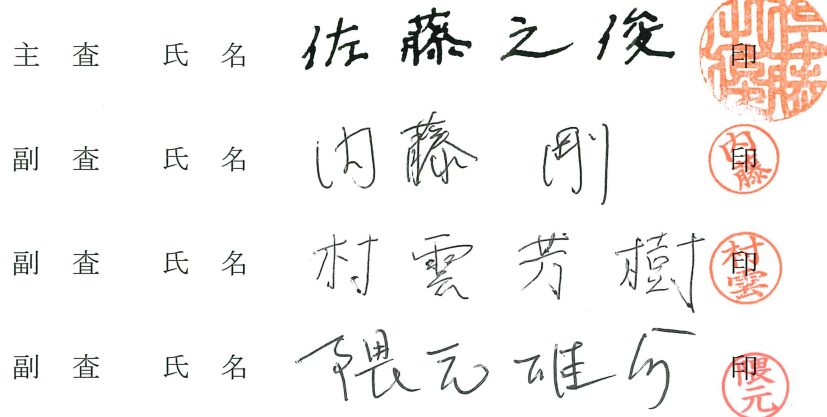 主査 氏名 佐藤之俊 印
副査 氏名 内藤 剛 印 内藤
副査 氏名 村雲芳樹 印 村雲
副査 氏名 隈元雄介 印 隈元